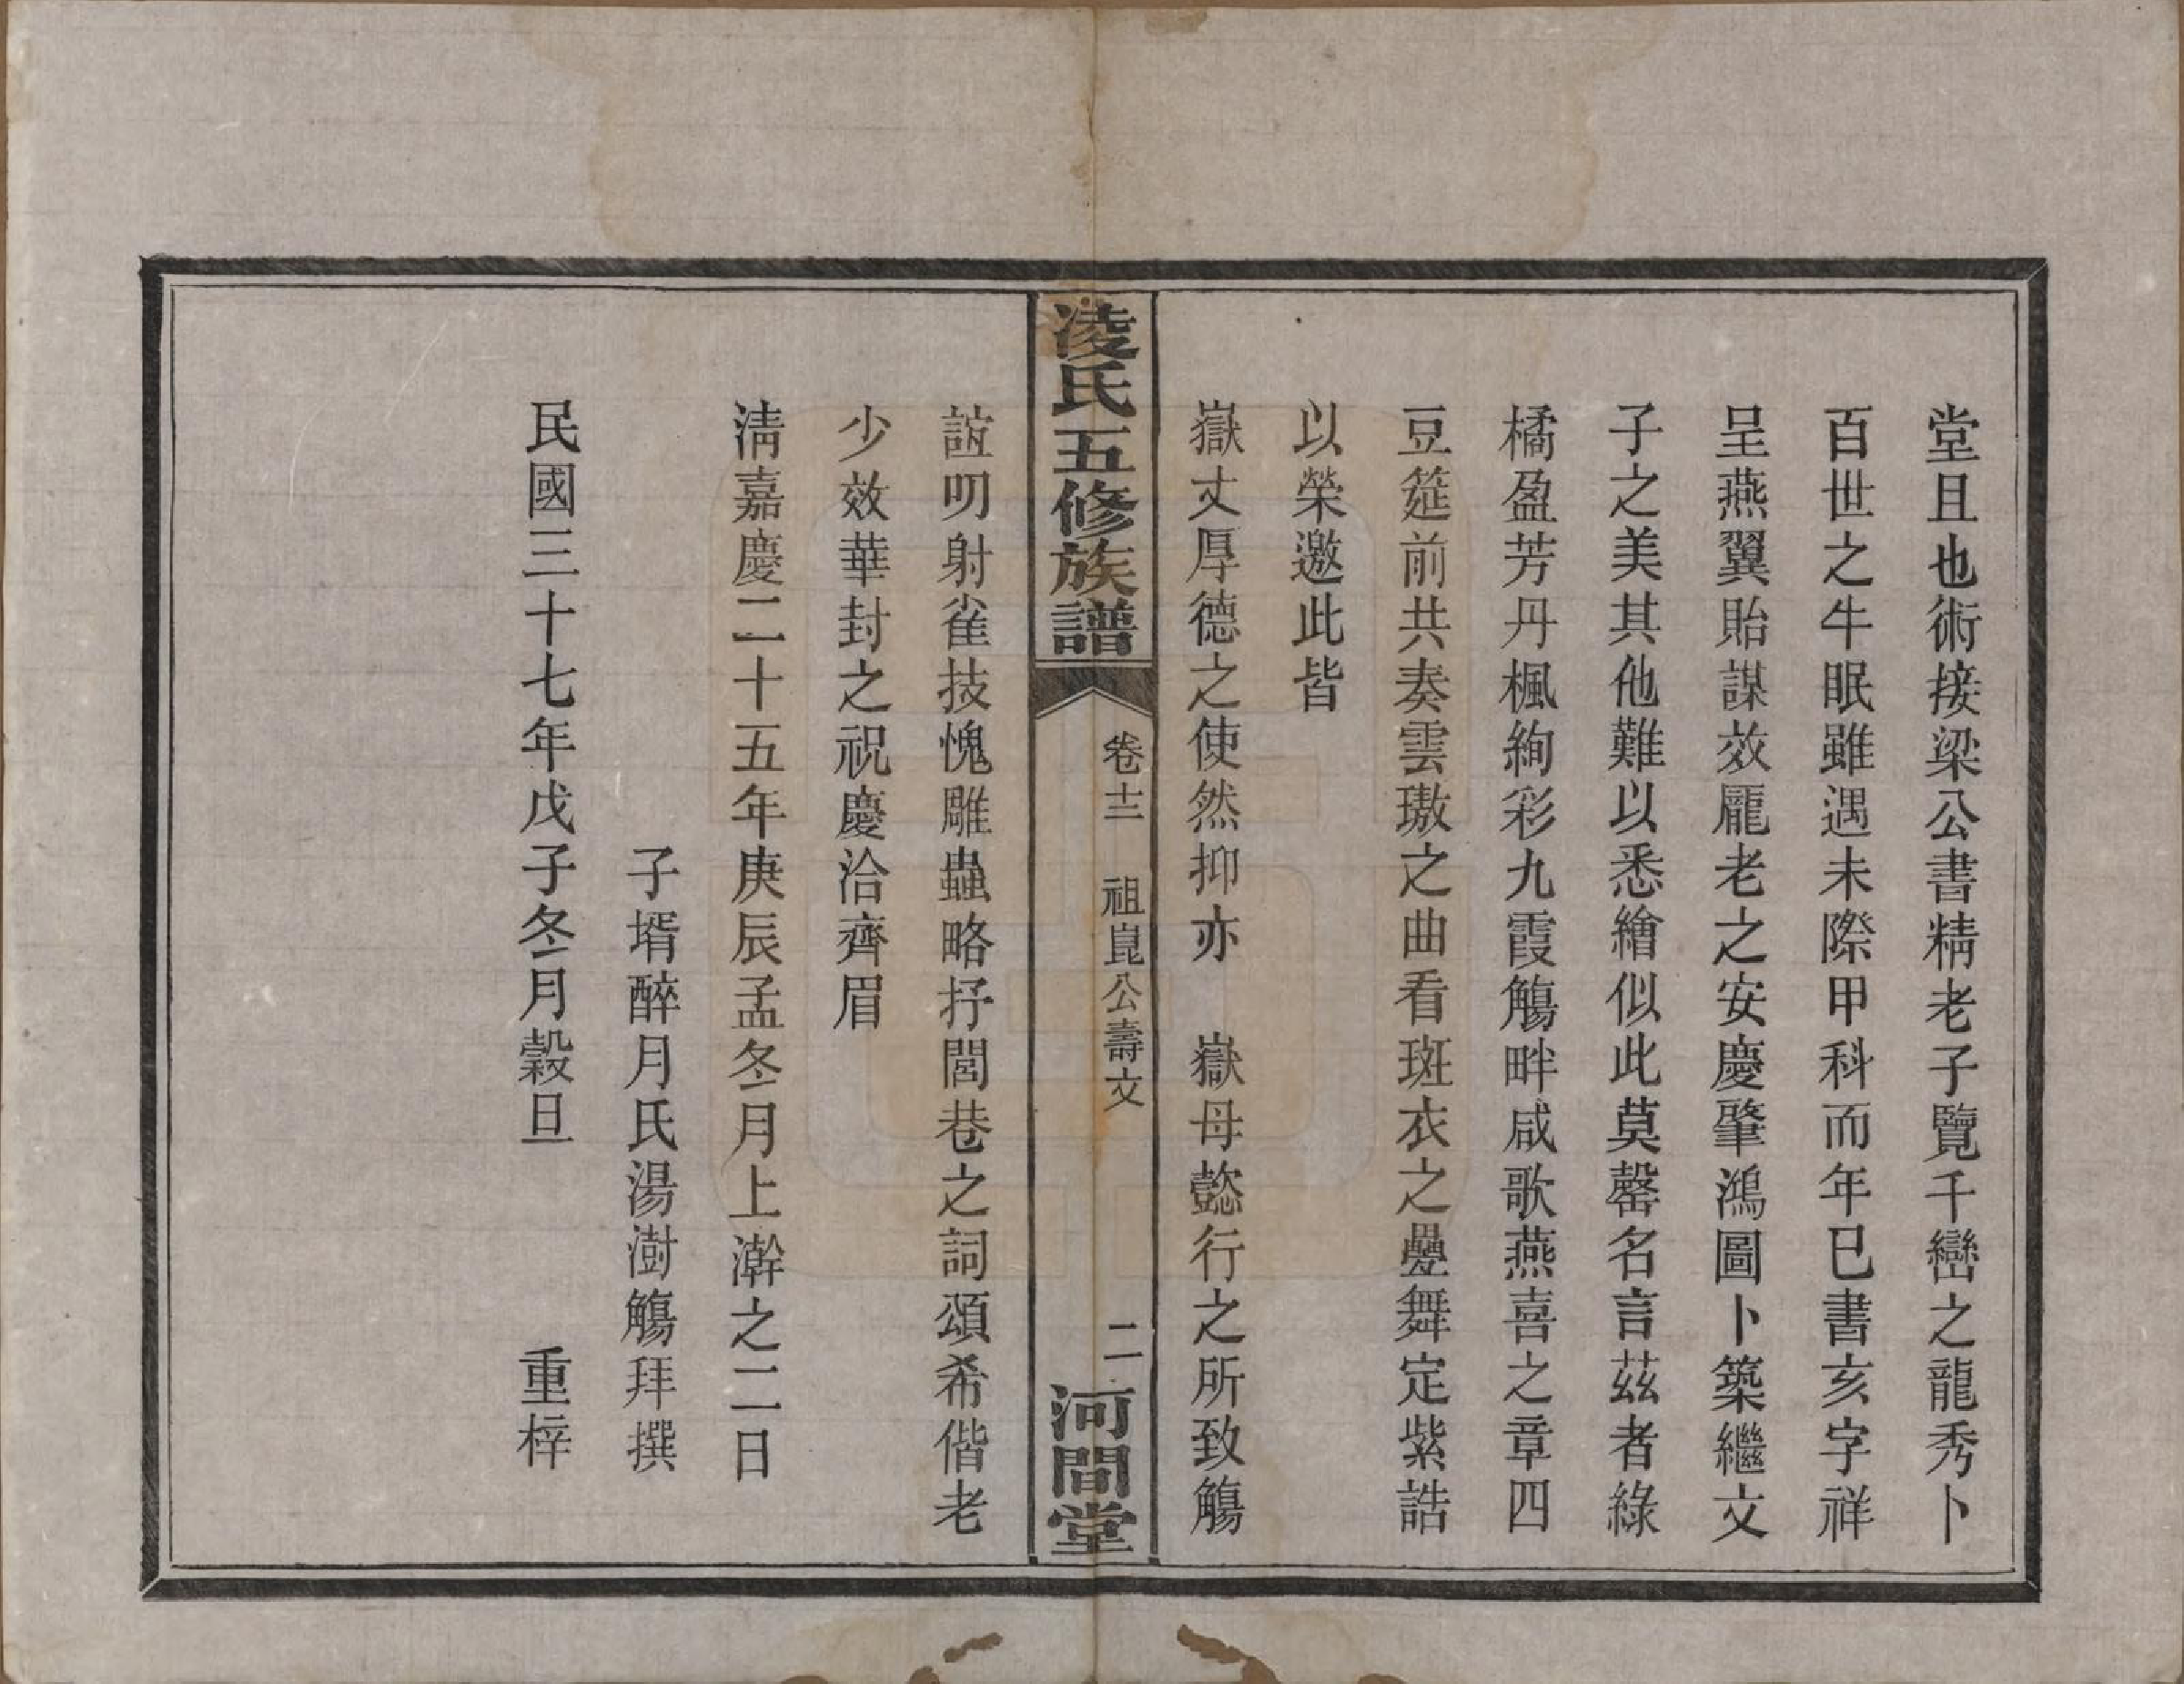 堂且也術接梁公書精老子覽千巒之龍秀卜
百世之牛眠雖遇未際甲科而年巳書亥字祥
呈燕翼貽謀效龎老之安慶肇鴻圖卜築繼文
子之美其他難以悉繪似此莫罄名言茲者綠
橘盈芳丹楓絢彩九霞觴畔咸歌燕喜之章四
豆筵前共奏雲璈之曲看斑衣之疊舞定紫誥
以榮邀此皆
嶽丈厚德之使然抑亦　嶽母懿行之所致觴
凌氏五修族譜　卷十二　祖崑公壽文　二　河間堂
誼叨射雀技愧雕蟲略抒閭巷之詞頌希偕老
少效華封之祝慶洽齊眉
淸嘉慶二十五年庚辰孟冬月上澣之二日
子壻醉月氏湯澍觴拜撰
民國三十七年戊子冬月穀旦　重梓